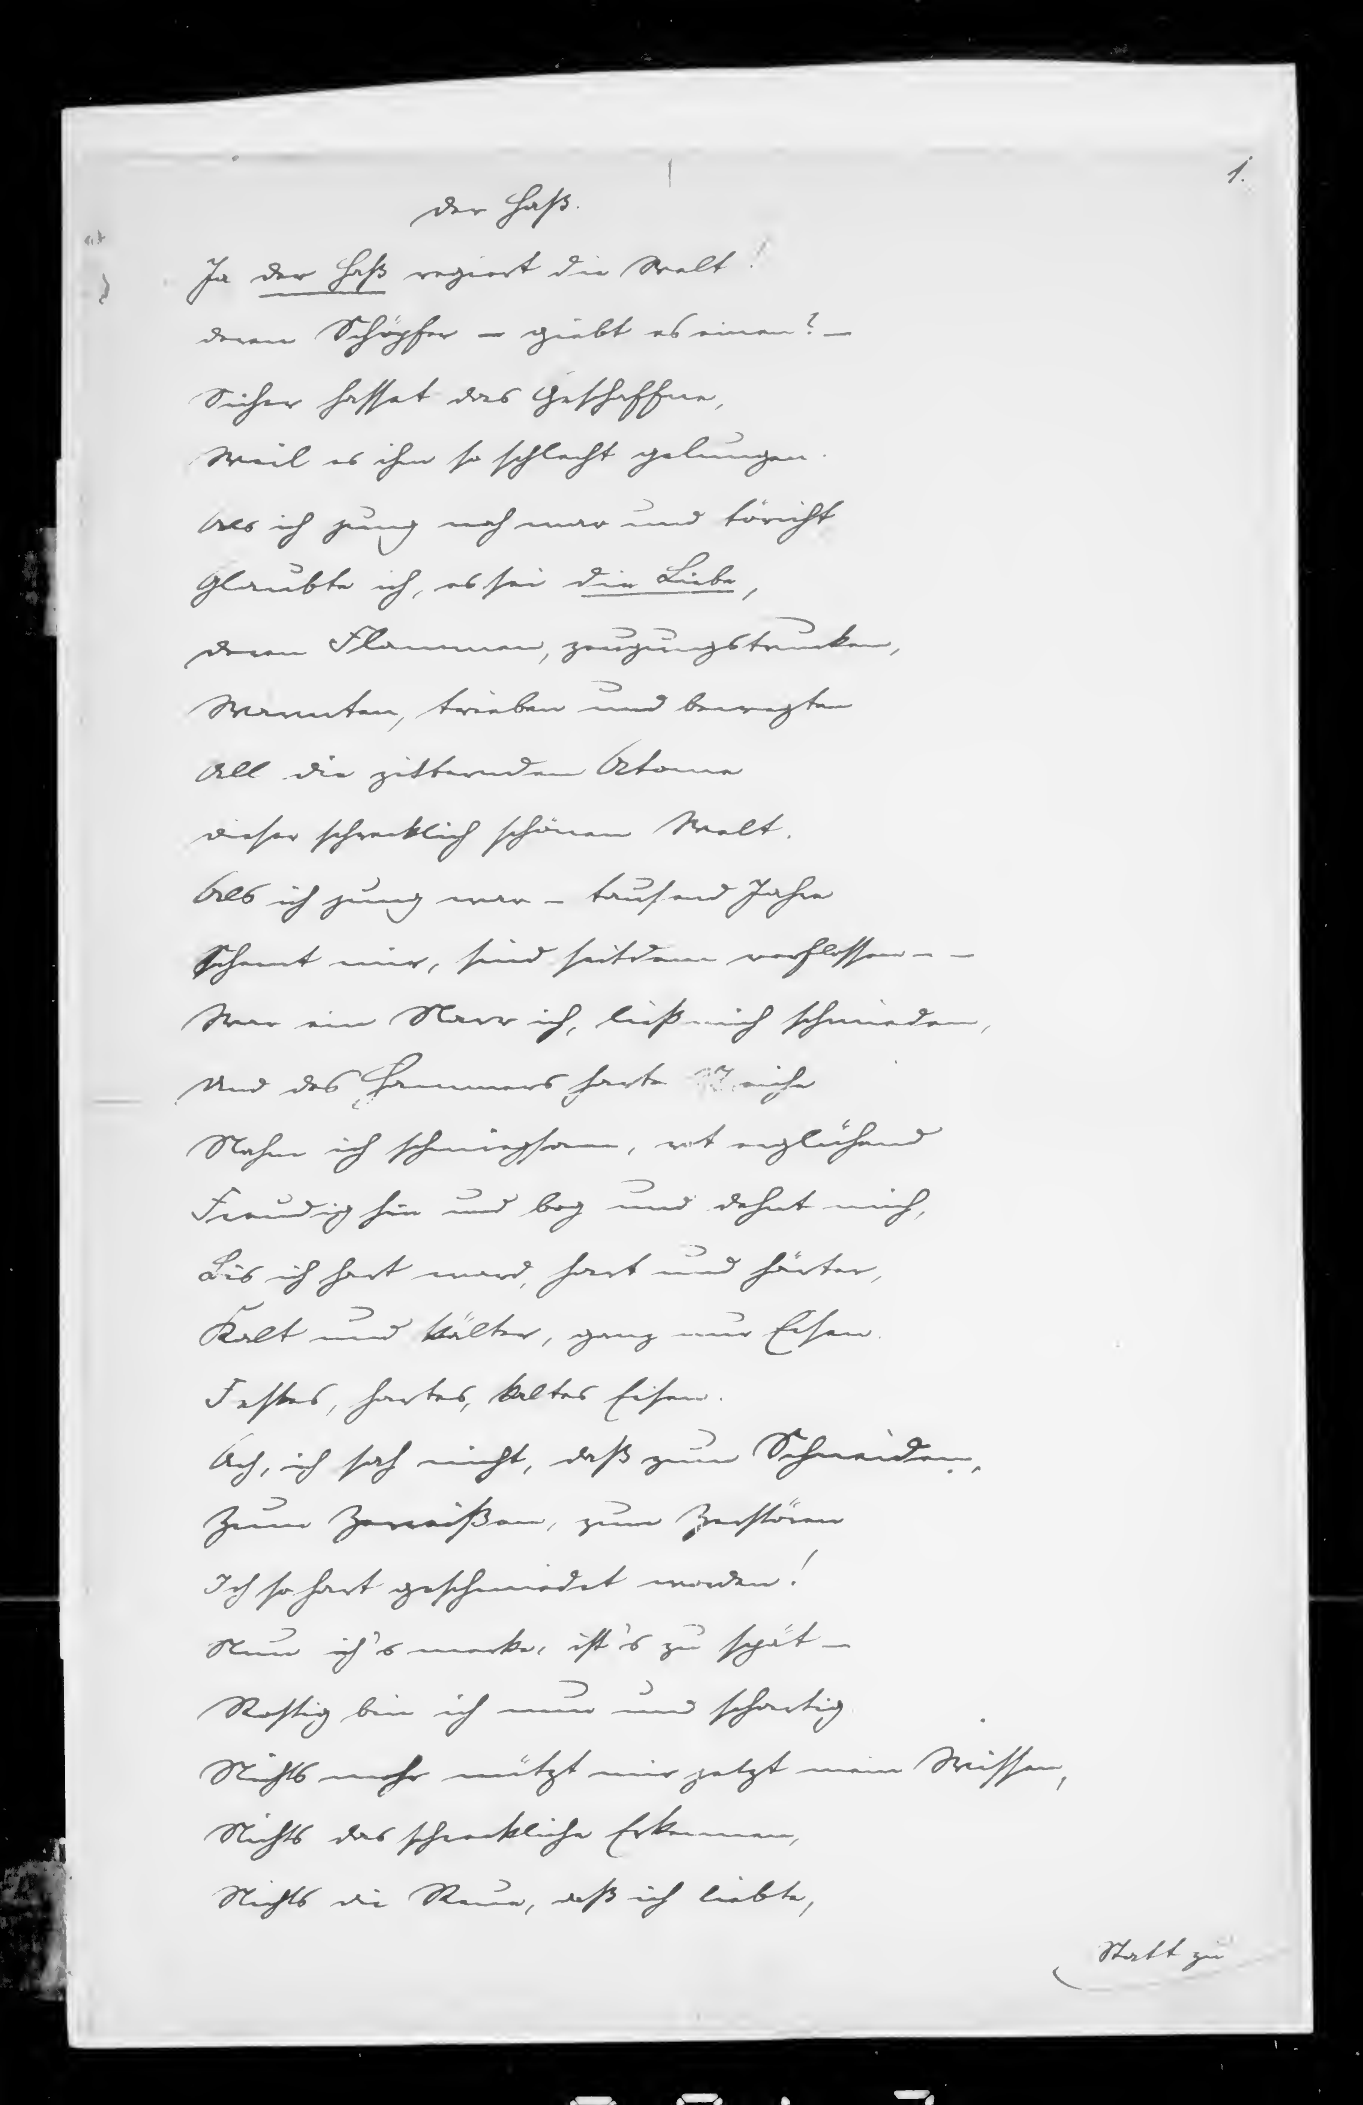 1.
Der Haß.
Ja der Haß regiert die Welt!
Deren Schöpfer – giebt es einen? –
Sicher hasset das Geschaffne,
Weil es ihm so schlecht gelungen.
Als ich jung noch war und töricht
Glaubte ich, es sei die Liebe,
Deren Flammen, zeugungstrunken,
Wärmten, trieben und bewegten
All die zitternden Atome
Dieser schrecklich schönen Welt.
Als ich jung war – tausend Jahre
Scheint mir, sind seitdem verflossen – –
War ein Narr ich, ließ mich schmieden,
Und des Hammers harte
Nahm ich schmiegsam, rot erglühend
Freudig hin und bog und dehnt mich,
Bis ich hart ward, hart und härter,
Kalt und kälter, ganz nur Eisen.
Festes, hartes, kaltes Eisen.
Ach, ich sah nicht, daß zum Schneiden,
Zum Zerreißen, zum Zerstören
Ich so hart geschmiedet worden!
Nun ich's merke, ist's zu spät –
Rostig bin ich nun und schartig
Nichts mehr nützt mir jetzt mein Wissen,
Nichts das schreckliche Erkennen,
Nichts die Reue, daß ich liebte,
Statt zu